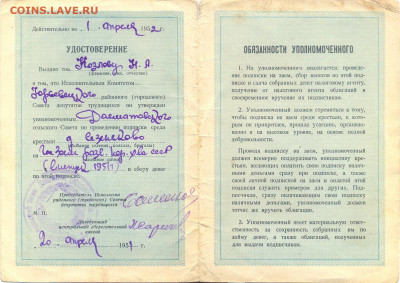 COINS.LAVE.RU
Действительно по 1 апреля 1952 г.
УДОСТОВЕРЕНИЕ
Выдано тов. Козлову Н. А.
(фамилия, имя, отчество)
в том, что Исполнительным Комитетом
районного (городского)
Совета депутатов трудящихся он утвержден
уполномоченным
сельского Совета по проведению подписки среди
крестьян
на
СССР
(выпуск 1951 г.) и сбору денег
по этой подписке.
Председатель Исполкома
районного (городского) Совета
депутатов трудящихся
М. П.
Заведующий
центральной сберегательной
кассой
20 апреля 1951 г.
ОБЯЗАННОСТИ УПОЛНОМОЧЕННОГО
1. На уполномоченного возлагается: проведение
подписки на заем, сбор взносов по этой подписке
и сдача собранных денег налоговому агенту,
получение от налогового агента облигаций
и своевременное вручение их подписчикам.
2. Уполномоченный должен стремиться к тому,
чтобы подписка на заем среди крестьян, в которых
он состоит, прошла успешно, организованно
и на высоком уровне, на основе полной
добровольности.
Проводя подписку на заем, уполномоченный
должен всемерно поддерживать инициативу крестьян,
желающих оплатить свою подписку наличными
деньгами сразу при подписке, а также
своей личной подпиской на заем и оплатой этой
подписки служить примером для других. Подписчикам,
сразу оплачивающим свою подписку
наличными деньгами, уполномоченный должен
тотчас же вручить облигации.
3. Уполномоченный несет материальную ответственность
за сохранность собранных им по
займу денег, а также облигаций, полученных
для выдачи подписчикам.